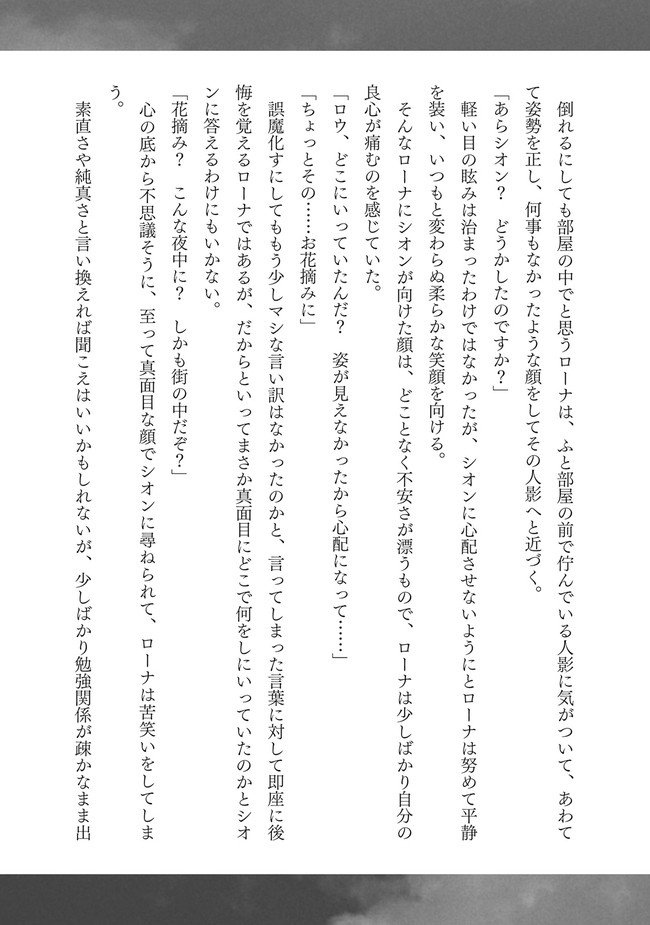 倒れるにしても部屋の中でと思うローナは、ふと部屋の前で佇んでいる人影に気がついて、あわて
て姿勢を正し、何事もなかったような顔をしてその人影へと近づく。
「あらシオン？　どうかしたのですか？」
　軽い目の眩みは治まったわけではなかったが、シオンに心配させないようにとローナは努めて平静
を装い、いつもと変わらぬ柔らかな笑顔を向ける。
　そんなローナにシオンが向けた顔は、どことなく不安さが漂うもので、ローナは少しばかり自分の
良心が痛むのを感じていた。
「ロウ、どこにいっていたんだ？　姿が見えなかったから心配になって……」
「ちょっとその……お花摘みに」
　誤魔化すにしてももう少しマシな言い訳はなかったのかと、言ってしまった言葉に対して即座に後
悔を覚えるローナではあるが、だからといってまさか真面目にどこで何をしにいっていたのかとシオ
ンに答えるわけにもいかない。
「花摘み？　こんな夜中に？　しかも街の中だぞ？」
　心の底から不思議そうに、至って真面目な顔でシオンに尋ねられて、ローナは苦笑いをしてしま
う。
　素直さや純真さと言い換えれば聞こえはいいかもしれないが、少しばかり勉強関係が疎かなまま出